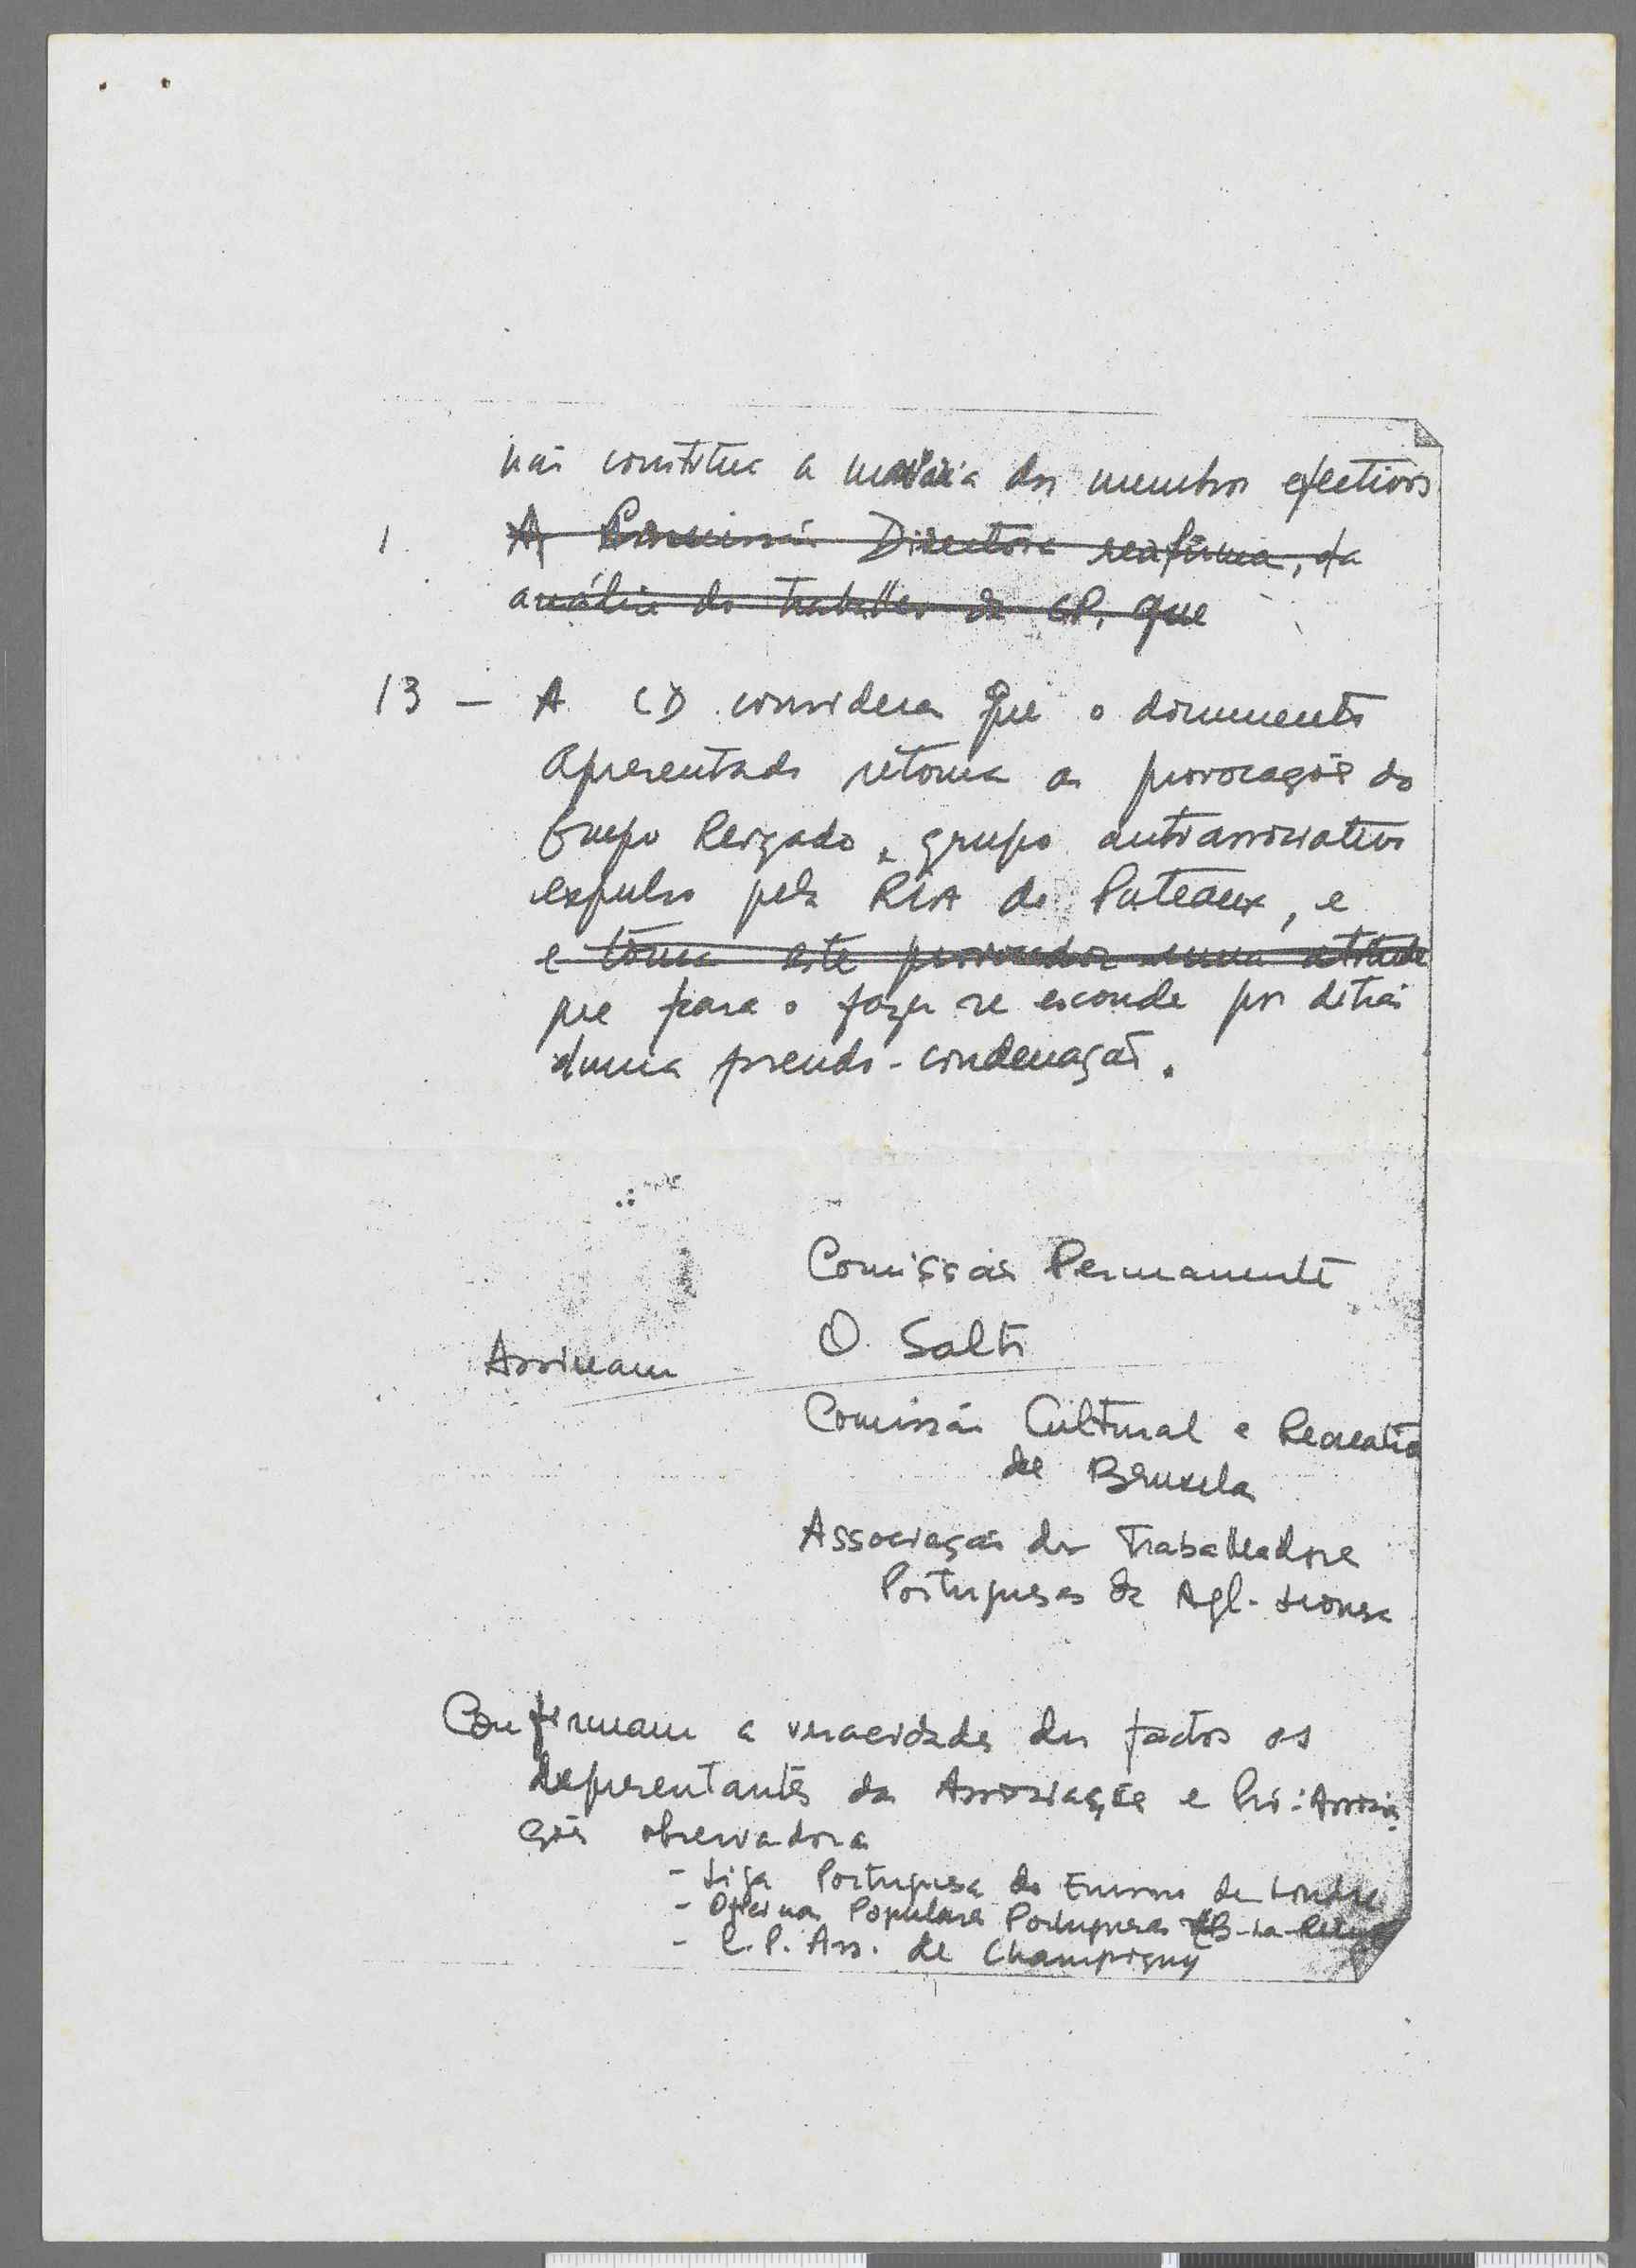 não constitue a maioria dos membros efectivos
1. A Comissão Directora reafirma, da
análise do trabalho da CP, que
13 - A CD considera que o documento
apresentado retoma as provocações do
Grupo Reizado, grupo antiassociativo
expulso pela RIA de Puteaux, e
e toma este provocador numa atitude
que para o fazer se esconde por detrás
duma pseudo-condenação.
Comissão Permanente
O Salto
Assinam
Comissão Cultural e Recreativa
de Bruxelas
Associação dos Trabalhadores
Portugueses da Agl. Lionesa
Confirmam a veracidade dos factos os
representantes das Associações e Pró-Associa
ções observadoras
- Liga Portuguesa do Ensino de Londres
- Oficinas Populares Portuguesas B-La-Reine
- C.P. Ass. de Champigny